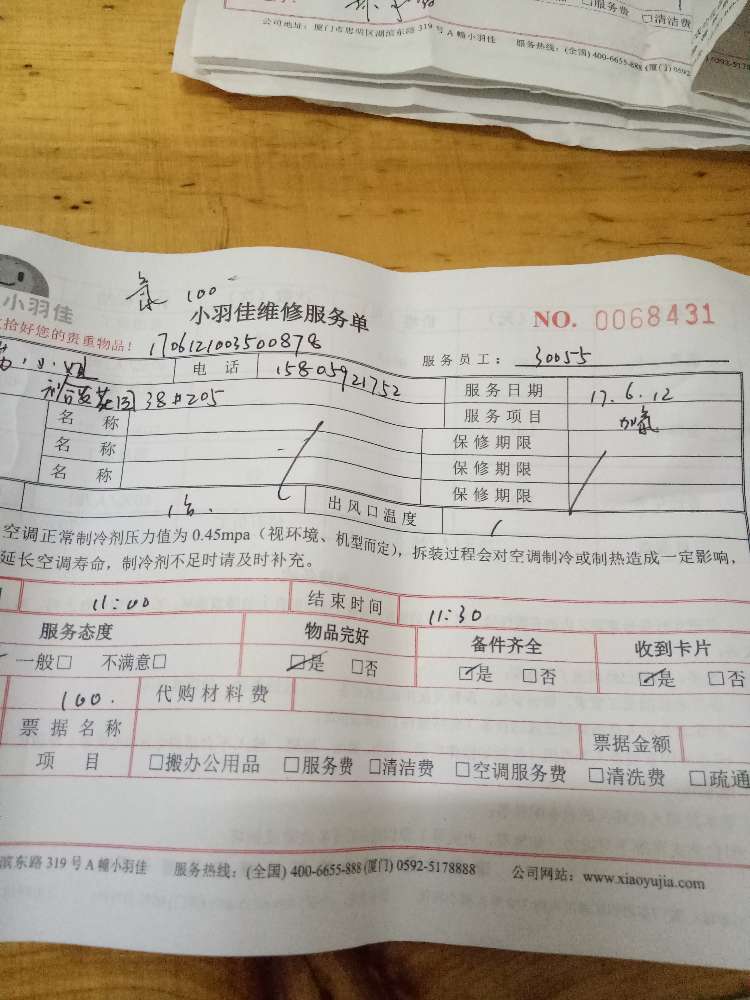 □服务费 □清洁费
公司地址：厦门市思明区湖滨东路 319 号 A 幢小羽佳 服务热线：(全国) 400-6655-888 (厦门) 0592
小羽佳
100
小羽佳维修服务单
NO. 0068431
拾好您的贵重物品！
1706121003500878
服务员工： 30055
小姐 电话 15805921752 服务日期 17.6.12
花园 38#205 服务项目 加氟
名称 保修期限
名称 保修期限
名称 保修期限
1台. 出风口温度 /
空调正常制冷剂压力值为 0.45mpa（视环境、机型而定），拆装过程会对空调制冷或制热造成一定影响，
延长空调寿命，制冷剂不足时请及时补充。
11:00 结束时间 11:30
服务态度 物品完好 备件齐全 收到卡片
一般□ 不满意□ ☑是 □否 ☑是 □否 ☑是 □否
100. 代购材料费
票据名称 票据金额
项目 □搬办公用品 □服务费 □清洁费 □空调服务费 □清洗费 □疏通
滨东路 319 号 A 幢小羽佳 服务热线：(全国) 400-6655-888 (厦门) 0592-5178888 公司网站：www.xiaoyujia.com